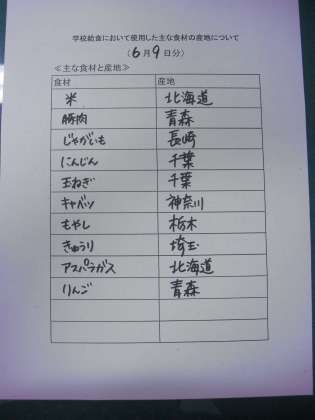 学校給食において使用した主な食材の産地について
(6月9日分)
≪主な食材と産地≫
食材 産地
米 北海道
豚肉 青森
じゃがいも 長崎
にんじん 千葉
玉ねぎ 千葉
キャベツ 神奈川
もやし 栃木
きゅうり 埼玉
アスパラガス 北海道
りんご 青森